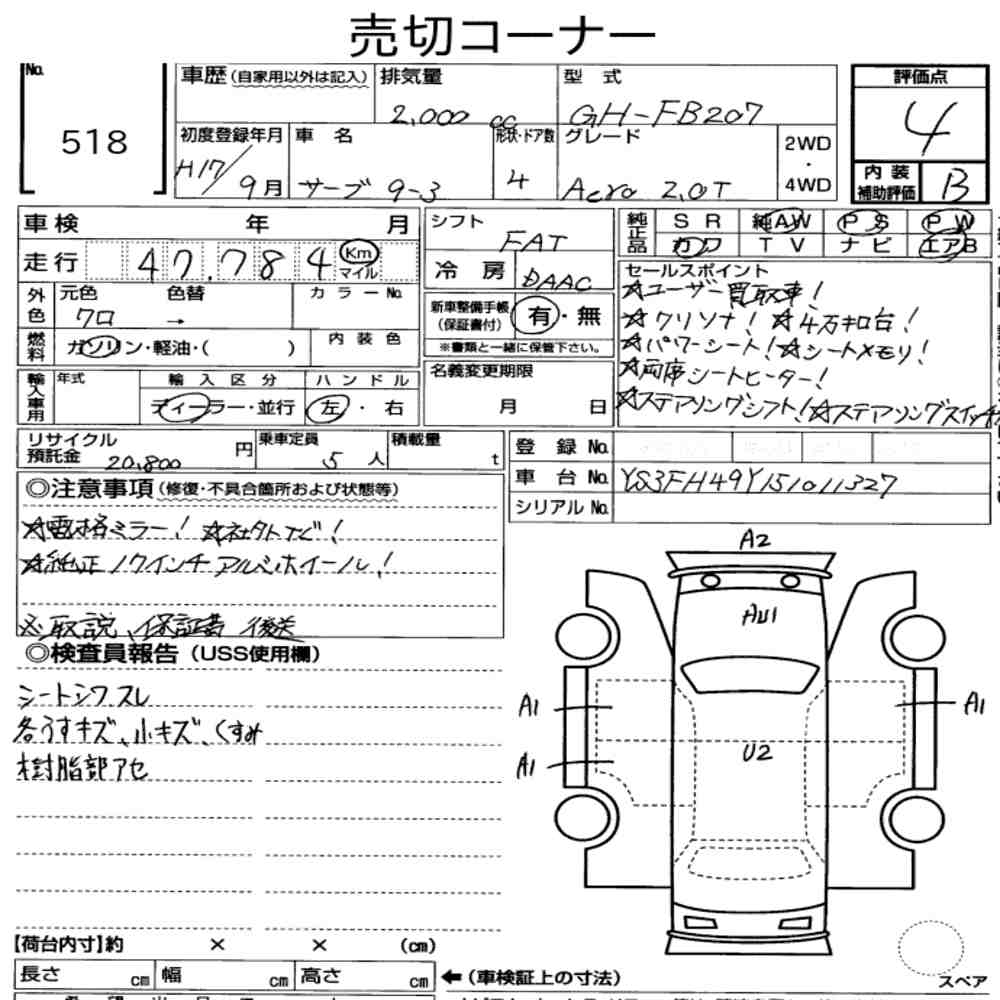 売切コーナー
No.
518
車歴(自家用以外は記入)
排気量
2,000 cc
型式
GH-FB207
評価点
4
初度登録年月
H17/9月
車名
サーブ 9-3
形状・ドア数
4
グレード
Aero 2.0T
2WD
・
4WD
内装
補助評価
B
車検 年 月
走行 47,784 Km
マイル
シフト
FAT
冷房
DAAC
純正品
SR 純AW PS PW
カワ TV ナビ エアB
セールスポイント
☆ユーザー買取車!
☆クリソナ! ☆4万キロ台!
☆パワーシート! ☆シートメモリ!
☆両席シートヒーター!
☆ステアリングシフト! ☆ステアリングスイッチ
外色
元色
クロ
色替
→
カラーNo.
燃料
ガソリン・軽油・( )
内装色
新車整備手帳
(保証書付)
有・無
※書類と一緒に保管下さい。
輸入車用
年式
輸入区分
ディーラー・並行
ハンドル
左・右
名義変更期限
月 日
リサイクル
預託金
20,800 円
乗車定員
5人
積載量
t
登録No.
車台No. YS3FH49Y151011327
シリアルNo.
◎注意事項(修復・不具合箇所および状態等)
☆電格ミラー! ☆社外ナビ!
☆純正17インチアルミホイール!
※取説、保証書 後送
◎検査員報告(USS使用欄)
シートシワスレ
各うすキズ、小キズ、くすみ
樹脂部アセ
A2
AU1
A1
A1
U2
A1
【荷台内寸】約 × × (cm)
長さ cm
幅 cm
高さ cm
←(車検証上の寸法)
スペア